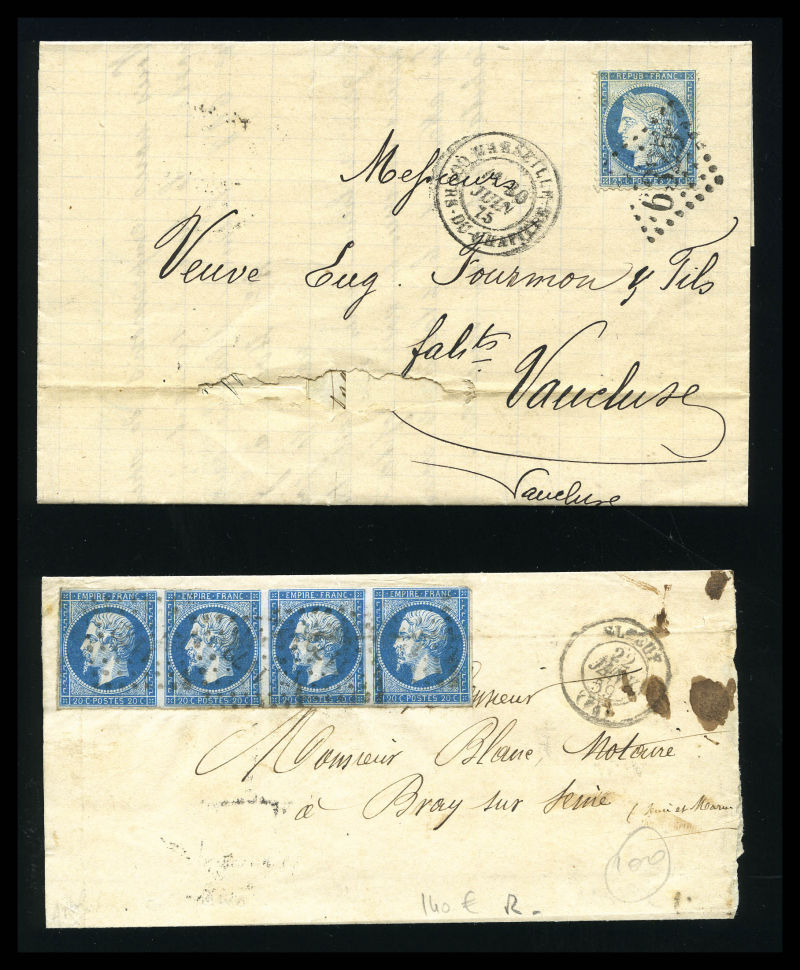 REPUB·FRANC
25 C POSTES 25 C
MARSEILLE
JUIN
75
Messieurs
Veuve Eug. Fourmon & Fils
fab^ts
Vaucluse
Vaucluse
EMPIRE·FRANC EMPIRE·FRANC EMPIRE·FRANC EMPIRE·FRANC
20 C POSTES 20 C 20 C POSTES 20 C 20 C POSTES 20 C 20 C POSTES 20 C
22
Monsieur
Monsieur Blanc, Notaire
à Bray sur Seine
(Seine et Marne
100
140 € R-